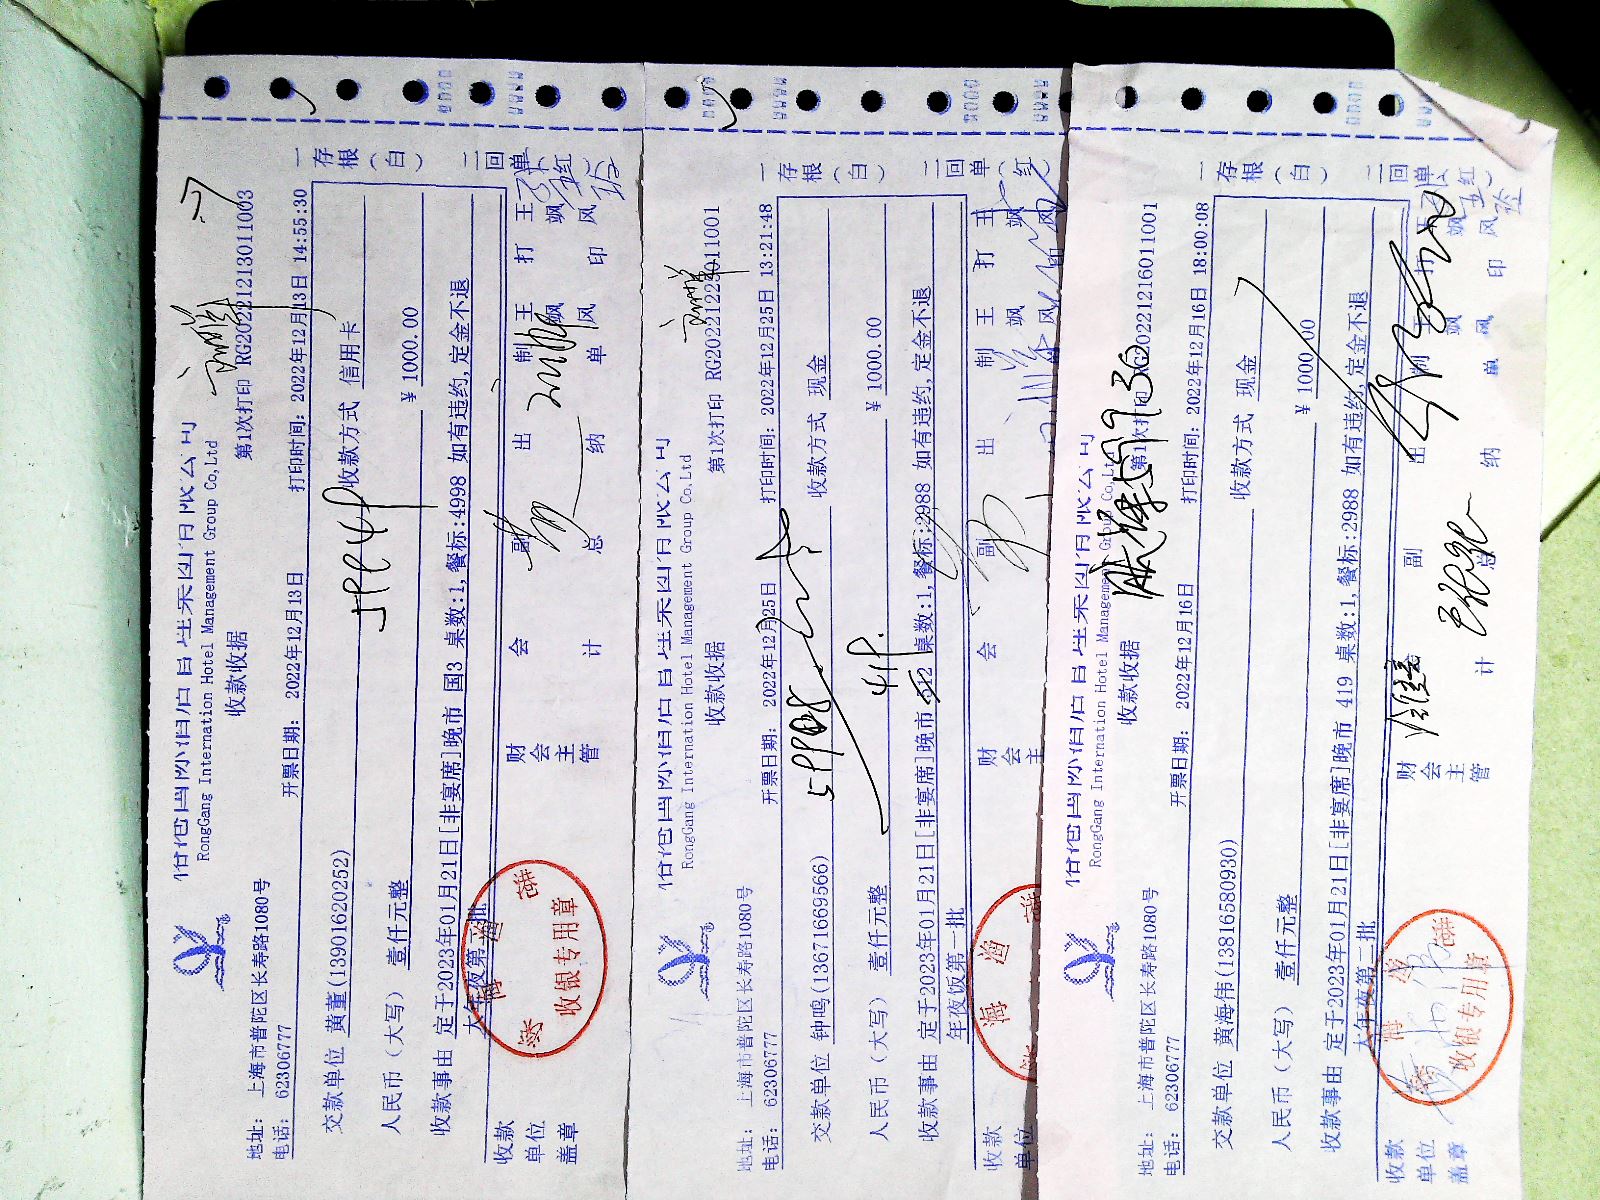 RongGang International Hotel Management Group Co,Ltd
收款收据
第1次打印 RG20221213011003
地址: 上海市普陀区长寿路1080号
电话: 62306777
开票日期: 2022年12月13日
打印时间: 2022年12月13日 14:55:30
一存根(白) 二回单(红)
交款单位 黄董(13901620252)
收款方式 信用卡
人民币(大写) 壹仟元整
¥1000.00
收款事由 定于2023年01月21日[非宴席]晚市 国3 桌数:1,餐标:4998 如有违约,定金不退
大年夜第二批
收款单位盖章
财会主管
会计
副总
出纳
制单 王飒风
打印 王飒风
收银专用章
RongGang International Hotel Management Group Co,Ltd
收款收据
第1次打印 RG20221225011001
地址: 上海市普陀区长寿路1080号
电话: 62306777
开票日期: 2022年12月25日
打印时间: 2022年12月25日 13:21:48
一存根(白) 二回单(红)
交款单位 钟鸣(13671669566)
收款方式 现金
人民币(大写) 壹仟元整
¥1000.00
收款事由 定于2023年01月21日[非宴席]晚市 桌数:1,餐标:2988 如有违约,定金不退
年夜饭第一批
收款单位
财会主
会
副
出
制 王飒风
打 王飒风
RongGang International Hotel Management Group Co,Ltd
收款收据
第1次打印 RG20221216011001
地址: 上海市普陀区长寿路1080号
电话: 62306777
开票日期: 2022年12月16日
打印时间: 2022年12月16日 18:00:08
一存根(白) 二回单(红)
交款单位 黄海伟(13816580930)
收款方式 现金
人民币(大写) 壹仟元整
¥1000.00
收款事由 定于2023年01月21日[非宴席]晚市 419 桌数:1,餐标:2988 如有违约,定金不退
大年夜第二批
收款单位盖章
财会主管
计
副总
出纳
制单
打印
收银专用章